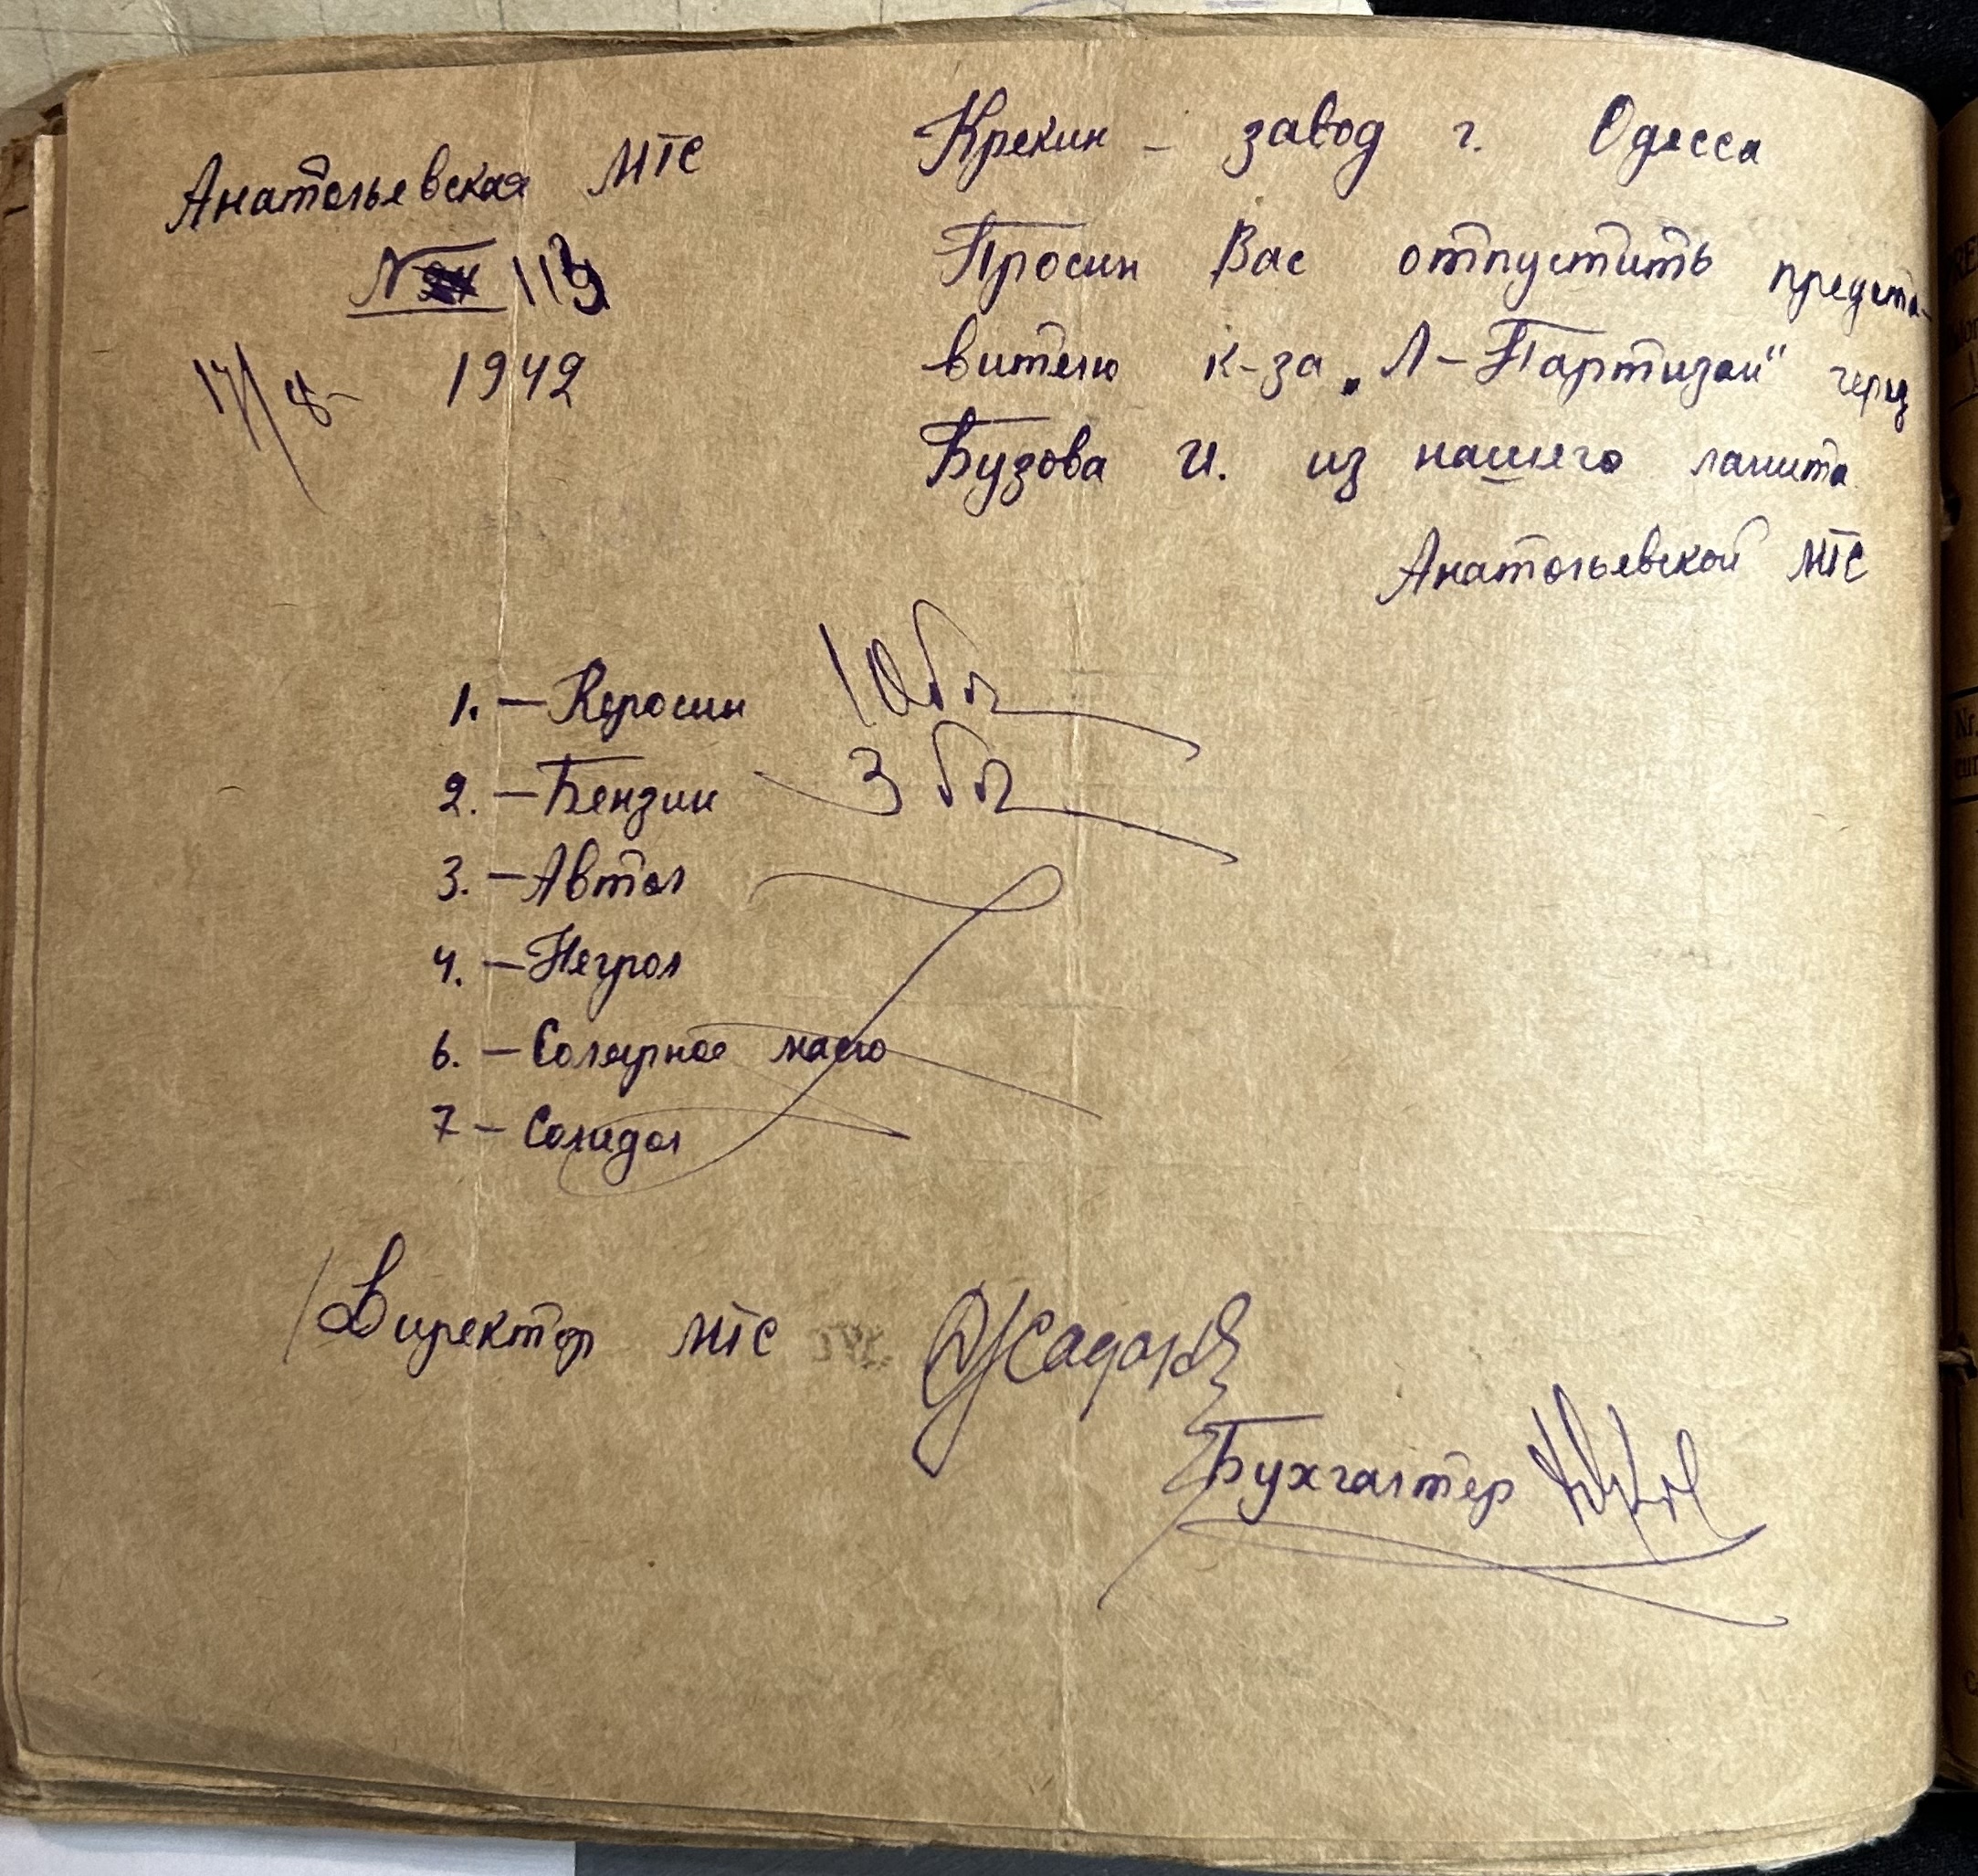 Анатольевская МТС
№ 113
17/8- 1942
Крекин - завод г. Одесса
Просим Вас отпустить предста-
вителю к-за „Л-Партизан" через
Бузова И. из нашего лимита
Анатольевской МТС
1. — Керосин 10 бч
2. — Бензин 3 бч
3. — Автол
4. — Негрол
6. — Солярное масло
7 — Солидол
Директор МТС
Бухгалтер